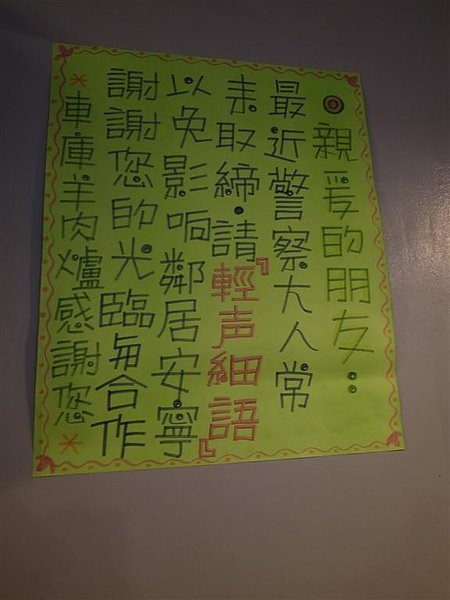 親愛的朋友：
最近警察大人常
來取締，請『輕声細語』
以免影响鄰居安寧
謝謝您的光臨與合作
＊車庫羊肉爐感謝您＊